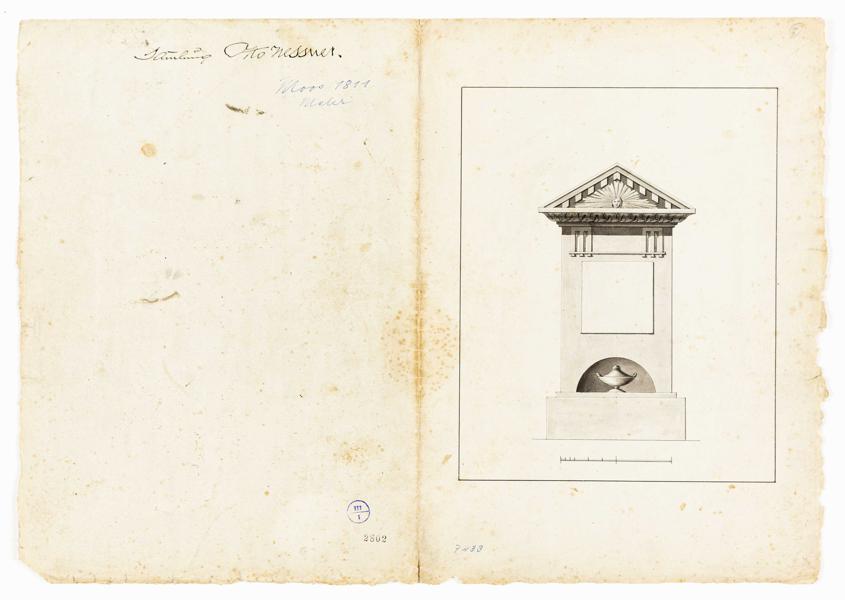 Sammlung Otto Nessner.
Moos 1811
Maler
III
2802